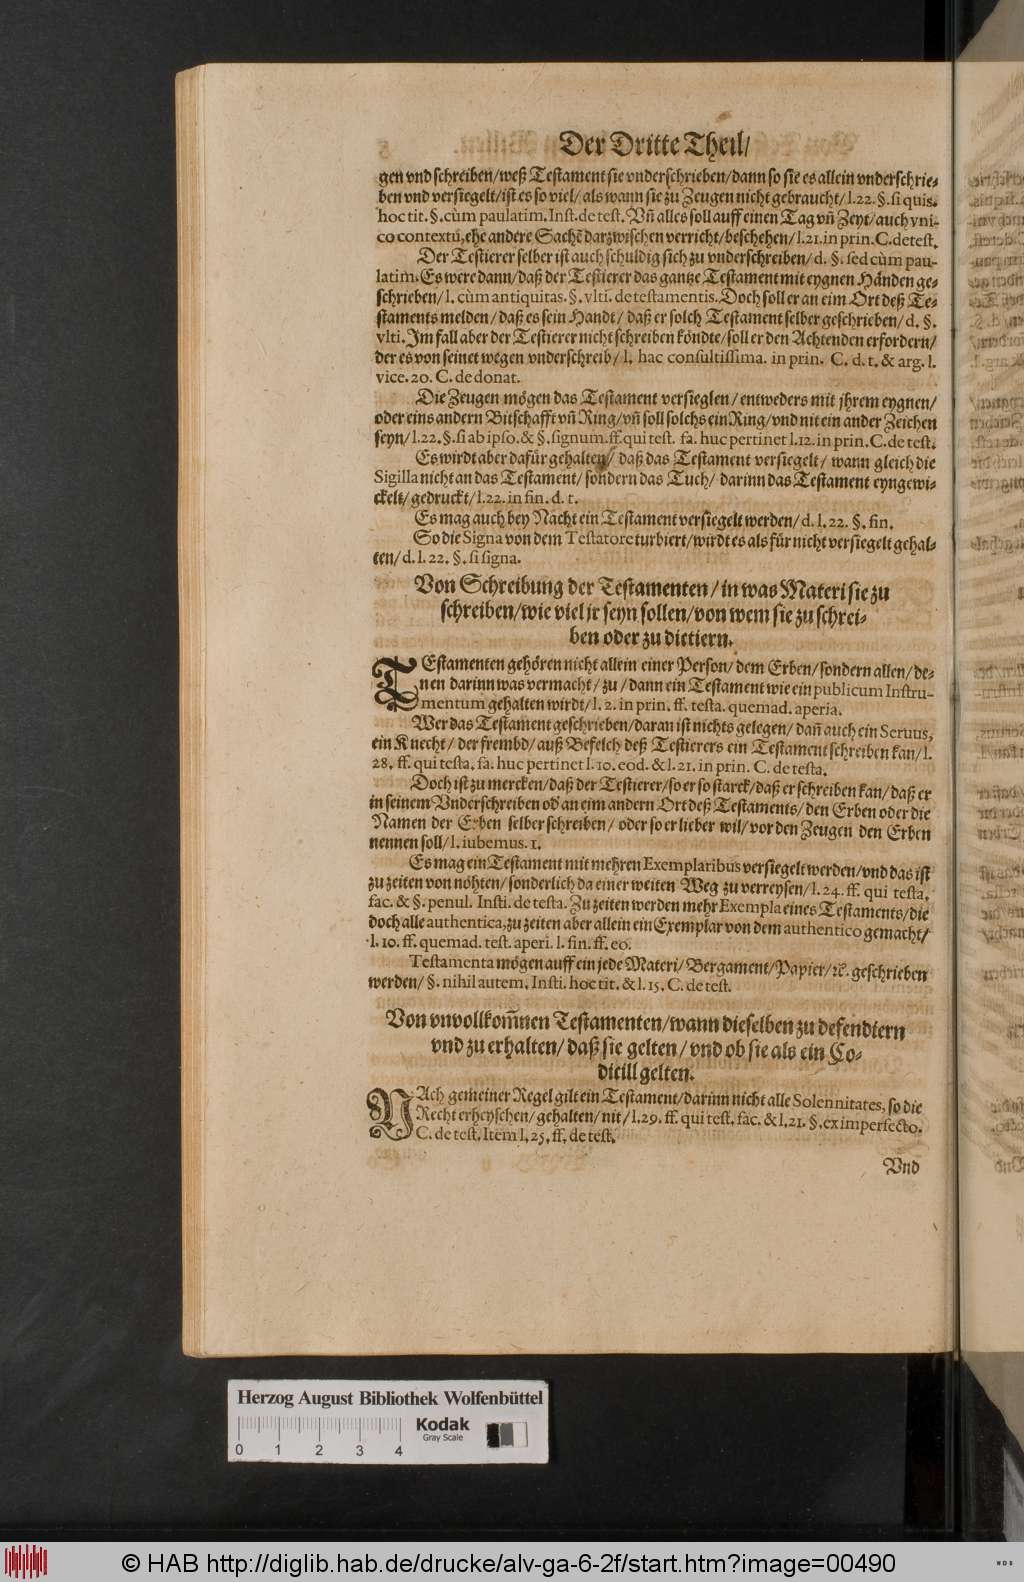 Der Dritte Theil/
gen vnd schreiben/weß Testament sie vnderschrieben/dann so sie es allein vnderschrie-
ben vnd versiegelt/ist es so viel/als wann sie zu Zeugen nicht gebraucht/l.22.§.si quis.
hoc tit.§.cùm paulatim.Inst.de test.Vñ alles soll auff einen Tag vñ Zeyt/auch vni-
co contextũ,ehe andere Sachẽ darzwischen verricht/beschehen/l.21.in prin.C.de test.
Der Testierer selber ist auch schuldig sich zu vnderschreiben/d. §. sed cùm pau-
latim. Es were dann/daß der Testierer das gantze Testament mit eygnen Händen ge-
schrieben/l. cùm antiquitas. §. vlti. de testamentis. Doch soll er an eim Ort deß Te-
staments melden/daß es sein Handt/daß er solch Testament selber geschrieben/d. §.
vlti. Im fall aber der Testierer nicht schreiben köndte/soll er den Achtenden erfordern/
der es von seinet wegen vnderschreib/l. hac consultissima. in prin. C. d. t. & arg. l.
vice. 20. C. de donat.
Die Zeugen mögen das Testament versieglen/entweders mit jhrem eygnen/
oder eins andern Bitschafft vñ Ring/vñ soll solchs ein Ring/vnd nit ein ander Zeichen
seyn/l.22.§.si ab ipso.& §.signum.ff.qui test. fa. huc pertinet l.12.in prin.C.de test.
Es wirdt aber dafür gehalten/daß das Testament versiegelt/wann gleich die
Sigilla nicht an das Testament/sondern das Tuch/darinn das Testament eyngewi-
ckelt/gedruckt/l.22. in fin. d. t.
Es mag auch bey Nacht ein Testament versiegelt werden/d. l. 22. §. fin.
So die Signa von dem Testatore turbiert/wirdt es als für nicht versiegelt gehal-
ten/d. l. 22. §. si signa.
Von Schreibung der Testamenten/in was Materi sie zu
schreiben/wie viel jr seyn sollen/von wem sie zu schrei-
ben oder zu dictiern.
TEstamenten gehören nicht allein einer Person/dem Erben/sondern allen/de-
nen darinn was vermacht/zu/dann ein Testament wie ein publicum Instru-
mentum gehalten wirdt/l. 2. in prin. ff. testa. quemad. aperia.
Wer das Testament geschrieben/daran ist nichts gelegen/dañ auch ein Seruus,
ein Knecht/der frembd/auß Befelch deß Testierers ein Testament schreiben kan/l.
28. ff. qui testa. fa. huc pertinet l. 10. eod. & l. 21. in prin. C. de testa.
Doch ist zu mercken/daß der Testierer/so er so starck/daß er schreiben kan/daß er
in seinem Vnderschreiben ob an eim andern Ort deß Testaments/den Erben oder die
Namen der Erben selber schreiben/oder so er lieber wil/vor den Zeugen den Erben
nennen soll/l. iubemus. 1.
Es mag ein Testament mit mehren Exemplaribus versiegelt werden/vnd das ist
zu zeiten von nöhten/sonderlich da einer weiten Weg zu verreysen/l. 24. ff. qui testa.
fac. & §. penul. Insti. de testa. Zu zeiten werden mehr Exempla eines Testaments/die
doch alle authentica,zu zeiten aber allein ein Exemplar von dem authentico gemacht/
l. 10. ff. quemad. test. aperi. l. fin. ff. eo.
Testamenta mögen auff ein jede Materi/Bergament/Papier/ꝛc. geschrieben
werden/§. nihil autem. Insti. hoc tit. & l. 15. C. de test.
Von vnvollkom̃nen Testamenten/wann dieselben zu defendiern
vnd zu erhalten/daß sie gelten/vnd ob sie als ein Co-
dicill gelten.
NAch gemeiner Regel gilt ein Testament/darinn nicht alle Solennitates, so die
Recht erheyschen/gehalten/nit/l.29. ff. qui test. fac. & l.21. §.ex imperfecto.
C. de test. Item l. 25. ff. de test.
Vnd
Herzog August Bibliothek Wolfenbüttel
Kodak
Gray Scale
0 1 2 3 4
© HAB http://diglib.hab.de/drucke/alv-ga-6-2f/start.htm?image=00490